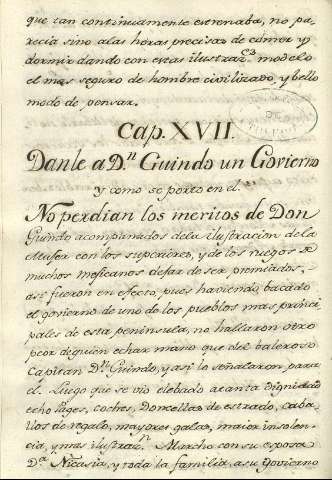 que tan continuamente estrenaba, no pa-
recia sino a las horas precisas de comer y
dormir dando con estas ilustraz.es modelo
el mas seguro de hombre civilizado, y bello
modo de pensar.
Cap. XVII.
Danle a D.n Guindo un Govierno
y como se porto en el.
No perdian los meritos de Don
Guindo acompañados dela ilustracion de la
Muger con los superiores, y de los ruegos de
muchos mejicanos dejar de ser premiados,
asi fueron en efecto, pues haviendo bacado
el govierno de uno de los pueblos mas princi-
pales de esta peninsula, no hallaron otro
peor de quien echar mano que del baleroso
Capitan D.n Guindo, y asi lo señalaron para
el. Luego que se vio elebado a tanta dignidad
echo Pages, coches, Doncellas de estrado, caba-
llos de regalo, mayores galas, maior insolen-
cia, y mas ilustraz.n Marcho con su esposa
D.a Nicasia, y toda la familia, a su govierno